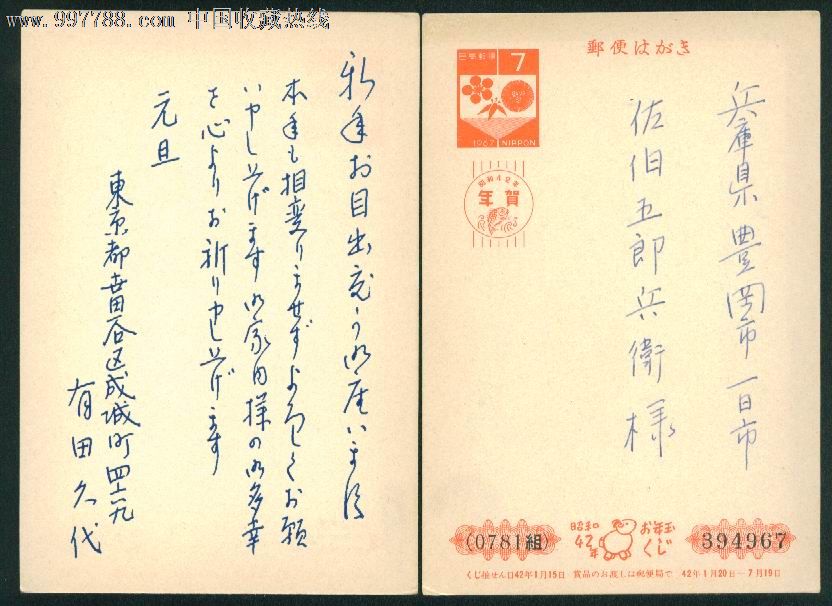 www.997788.com 中国收藏热线
新年お目出度う御座います
本年も相変りませずよろしくお願
い申し上げます 御家内様の御多幸
を心よりお祈り申し上げます
元旦
東京都世田谷区成城町四六九
有田久代
郵便はがき
日本郵便 7
1967 NIPPON
昭和42年
年賀
兵庫県豊岡市一日市
佐伯五郎兵衛様
(0781組)
昭和42年
お年玉くじ
394967
くじ抽せん日42年1月15日 賞品のお渡しは郵便局で 42年1月20日─7月19日